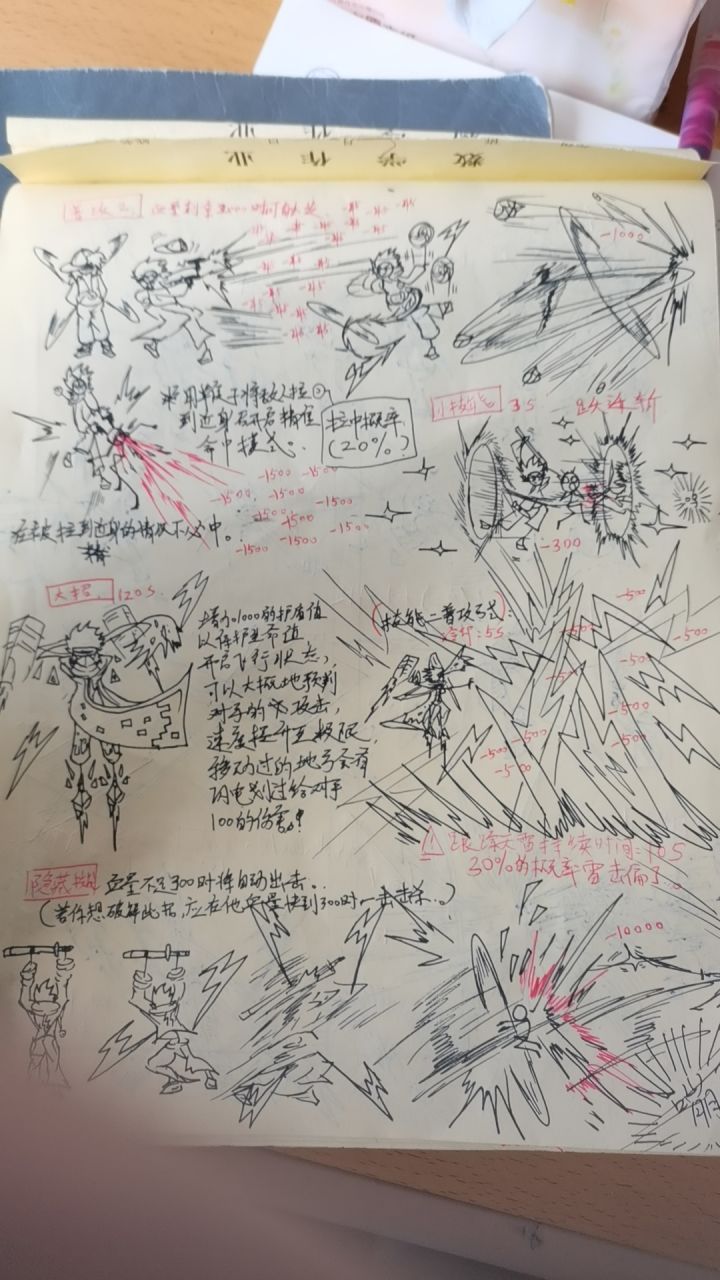 数学作业
血量到
时可
-45 -45 -45
-45 -45 -45 -45
-45 -45 -45
-45 -45
-45 -45
-45 -45
-45 -45 -45
-45 -45
-1000
将敌人拉
到近身后开启精准
命中模式。
拉中概率
(20%)
小技能
3S
-1500 -1500
-1500 -1500 -1500
-1500 -1500
-1500 -1500 -1500
被拉到近身的情况下必中。
-300
大招
120S
增加1000的护盾值
以保护生命值
开启飞行状态,
可以大概地预判
对手的攻击,
速度提升至极限,
过的地方会有
闪电划过给对手
100的伤害!
(技能二普攻
冷却:5S
-500
-500 -500
-500
-500 -500
-500 -500
-500 -500
持续时间:10S
30%的概率雷击偏了。
隐藏技
血量不足300时将自动出击。
(若你想破解此招,应在他血量快到300时一击击杀。)
-10000